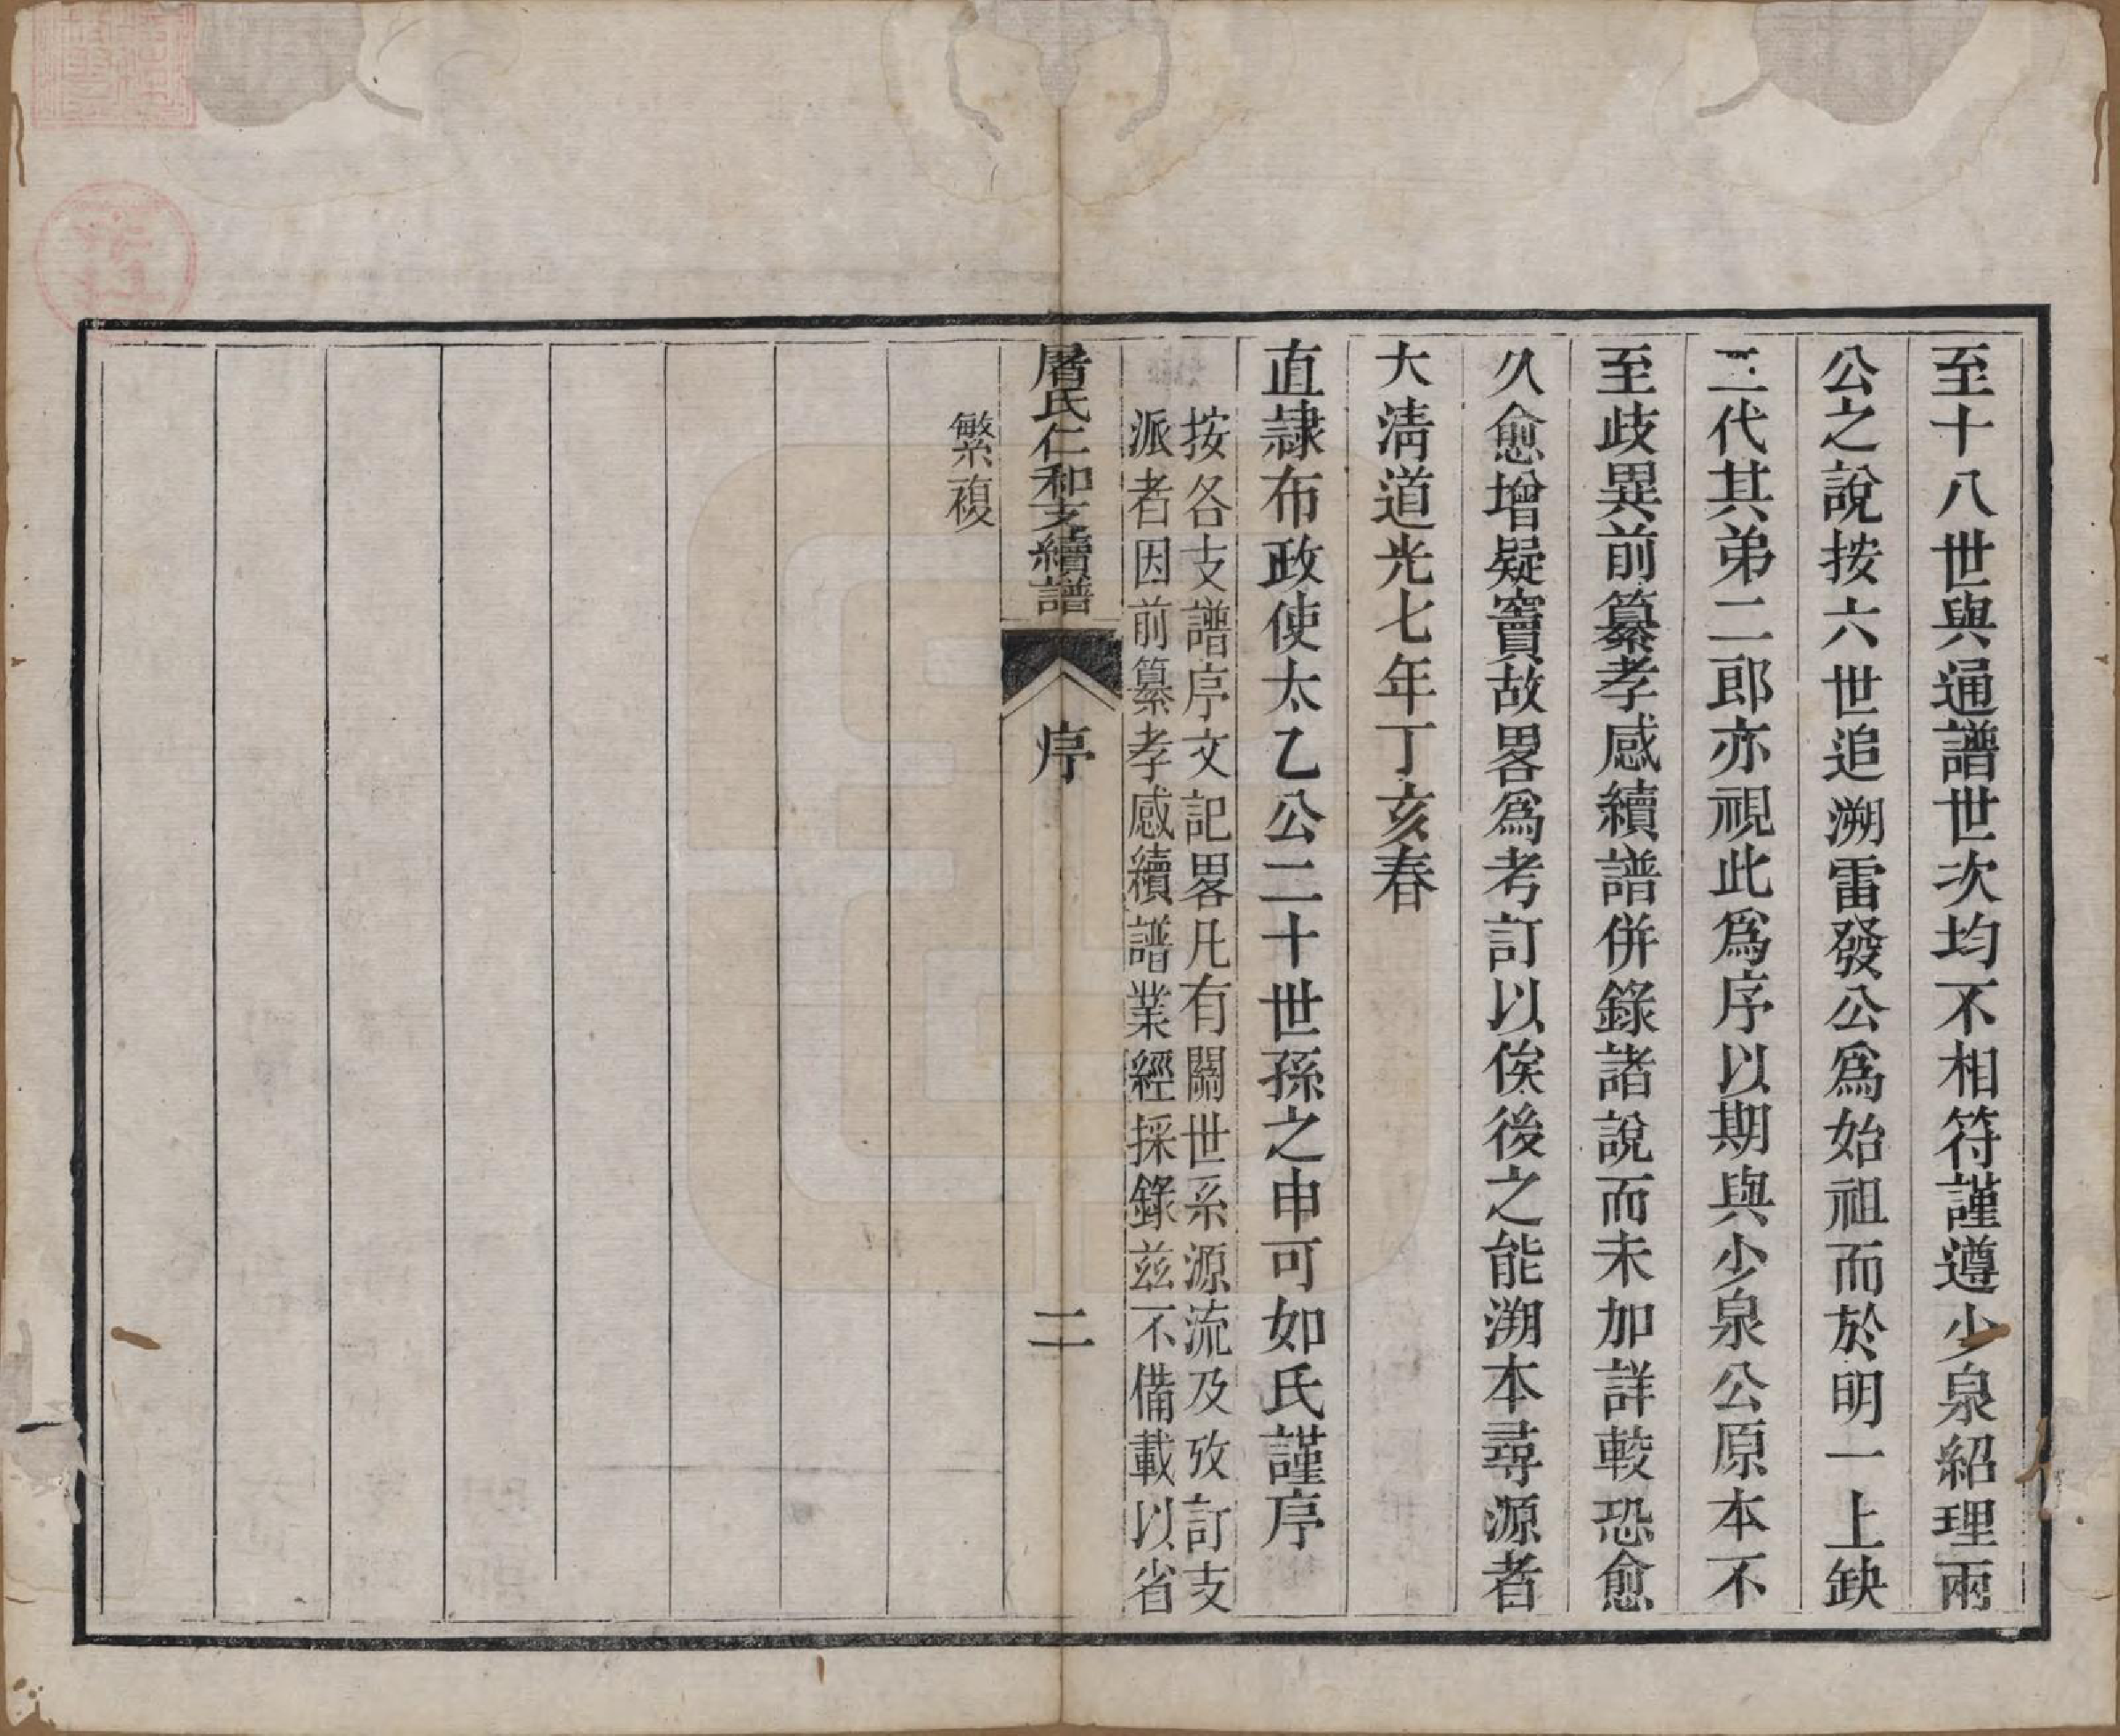 至十八世與通譜世次均不相符謹遵少泉紹理兩
公之說按六世追溯雷發公爲始祖而於明一上缺
二代其弟二郎亦視此爲序以期與少泉公原本不
至歧異前纂孝感續譜併錄諸說而未加詳較恐愈
久愈增疑竇故畧爲考訂以俟後之能溯本尋源者
大淸道光七年丁亥春
直隸布政使太乙公二十世孫之申可如氏謹序
按各支譜序文記畧凡有關世系源流及攷訂支
派者因前纂孝感續譜業經採錄茲不備載以省
屠氏仁和支續譜
序
二
繁複